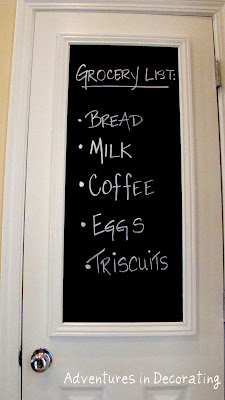 GROCERY LIST:
• BREAD
• MILK
• COFFEE
• EGGS
• TRISCUITS
Adventures in Decorating